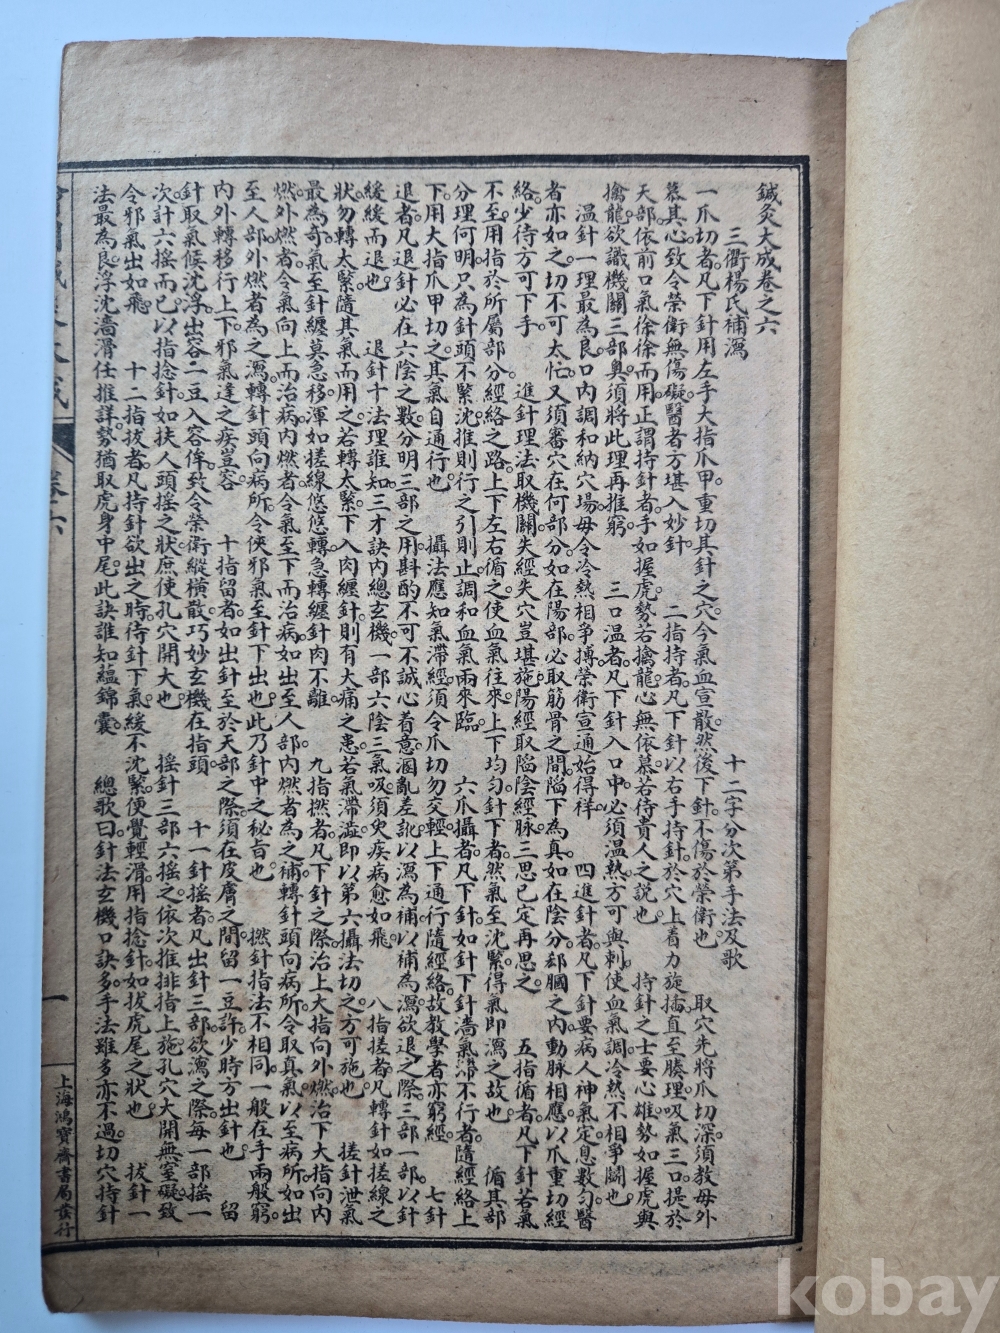 鍼灸大成卷之六
三衢楊氏補瀉　十二字分次第手法及歌
一爪切者。凡下針用左手大指爪甲。重切其針之穴。令氣血宣散。然後下針。不傷於榮衛也。　取穴先將爪切深。須教毋外
慕其心。致令榮衛無傷礙。醫者方堪入妙針。　二指持者。凡下針以右手持針。於穴上着力旋插。直至腠理。吸氣三口。提於
天部。依前口氣徐徐而用。正謂持針者。手如握虎。勢若擒龍。心無依慕。若待貴人之説也。　持針之士要心雄。勢如握虎與
擒龍。欲識機關三部奥。須將此理再推窮。　三口温者。凡下針入口中。必須温熱。方可與刺。使血氣調。冷熱不相爭鬭也。
温針一理最為良。口内調和納穴塲。毋令冷熱相爭搏。榮衛宣通始得祥。　四進針者。凡下針。要病人神氣定。息數勻。醫
者亦如之。切不可太忙。又須審穴在何部分。如在陽部。必取筋骨之間陷下為真。如在陰分。郄膕之内。動脉相應。以爪重切經
絡。少待方可下手。　進針理法取機關。失經失穴豈堪施。陽經取陷陰經脉。三思已定再思之。　五指循者。凡下針若氣
不至。用指於所屬部分經絡之路。上下左右循之。使血氣往來。上下均勻。針下者然氣至沈緊。得氣即瀉之故也。　循其部
分理何明。只為針頭不緊沈。推則行之引則止。調和血氣兩來臨。　六爪攝者。凡下針。如針下針濇氣滯不行者。隨經絡上
下用大指爪甲切之。其氣自通行也。　攝法應知氣滯經。須令爪切勿交輕。上下通行隨經絡。故教學者亦窮經。　七針
退者。凡退針必在六陰之數。分明三部之用。斟酌不可不誠心着意。溷亂差訛。以瀉為補。以補為瀉。欲退之際。三部一部。以針
緩緩而退也。　退針十法理誰知。三才訣内總玄機。一部六陰三氣吸。須臾疾病愈如飛。　八指搓者。凡轉針如搓線之
狀。勿轉太緊。隨其氣而用之。若轉太緊。下入肉纏針。則有大痛之患。若氣滯澁。即以第六攝法切之。方可施也。　搓針泄氣
最為奇。氣至針纏莫急移。渾如搓線悠悠轉。急轉纏針肉不離。　九指撚者。凡下針之際。治上大指向外撚。治下大指向内
撚。外撚者令氣向上而治病。内撚者令氣至下而治病。如出至人部。内撚者為之補。轉針頭向病所。令取真氣以至病所。如出
至人部。外撚者為之瀉。轉針頭向病所。令俠邪氣至針下出也。此乃針中之秘旨也。　撚針指法不相同。一般在手兩般窮。
内外轉移行上下。邪氣逢之疾豈容　十指留者。如出針至於天部之際。須在皮膚之間。留一豆許。少時方出針也。　留
針取氣候沈浮。出容二豆入容侔。致令榮衛縱橫散。巧妙玄機在指頭　十一針搖者。凡出針三部。欲瀉之際。每一部搖一
次計六搖而已。以指捻針。如扶人頭搖之狀。庶使孔穴開大也。　搖針三部六搖之。依次推排指上施。孔穴大開無窒礙。致
令邪氣出如飛。　十二指拔者。凡持針欲出之時。待針下氣緩不沈緊。便覺輕滑。用指捻針。如拔虎尾之狀也。　拔針一
法最為良。浮沈濇滑任推詳。勢猶取虎身中尾。此訣誰知蘊錦囊。　總歌曰。針法玄機口訣多。手法雖多亦不過。切穴持針
卷六
一
上海鴻寶齋書局發行
kobay